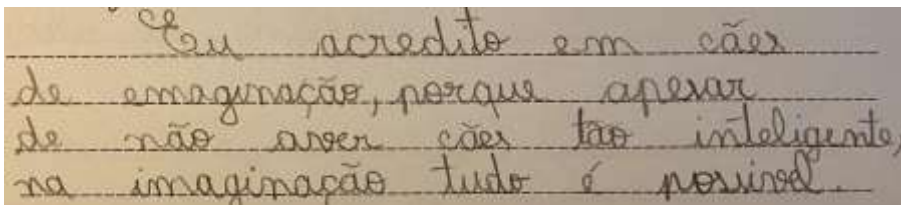 Eu acredito em cães
de emaginação, porque apesar
de não aver cães tão inteligente,
na imaginação tudo é possivel.